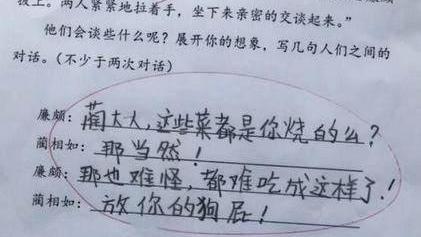 拔上。两人紧紧地拉着手，坐下来亲密的交谈起来。”
他们会谈些什么呢？展开你的想象，写几句人们之间的
对话。(不少于两次对话)
廉颇：蔺大人，这些菜都是你烧的么？
蔺相如：那当然！
廉颇：那也难怪，都难吃成这样了！
蔺相如：放你的狗屁！